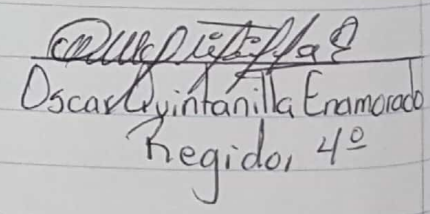 Oscar Quintanilla Enamorado
Regidor 4º